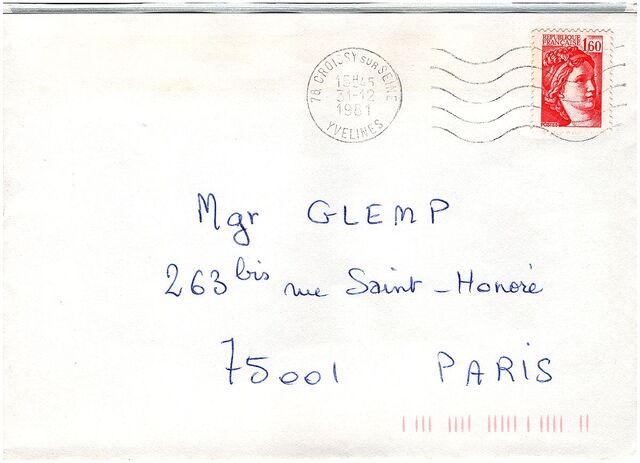 78 CROISSY SUR SEINE
15H45
31-12
1981
YVELINES
REPUBLIQUE
FRANÇAISE
1,60
POSTES
Mgr GLEMP
263 bis rue Saint-Honoré
75001 PARIS